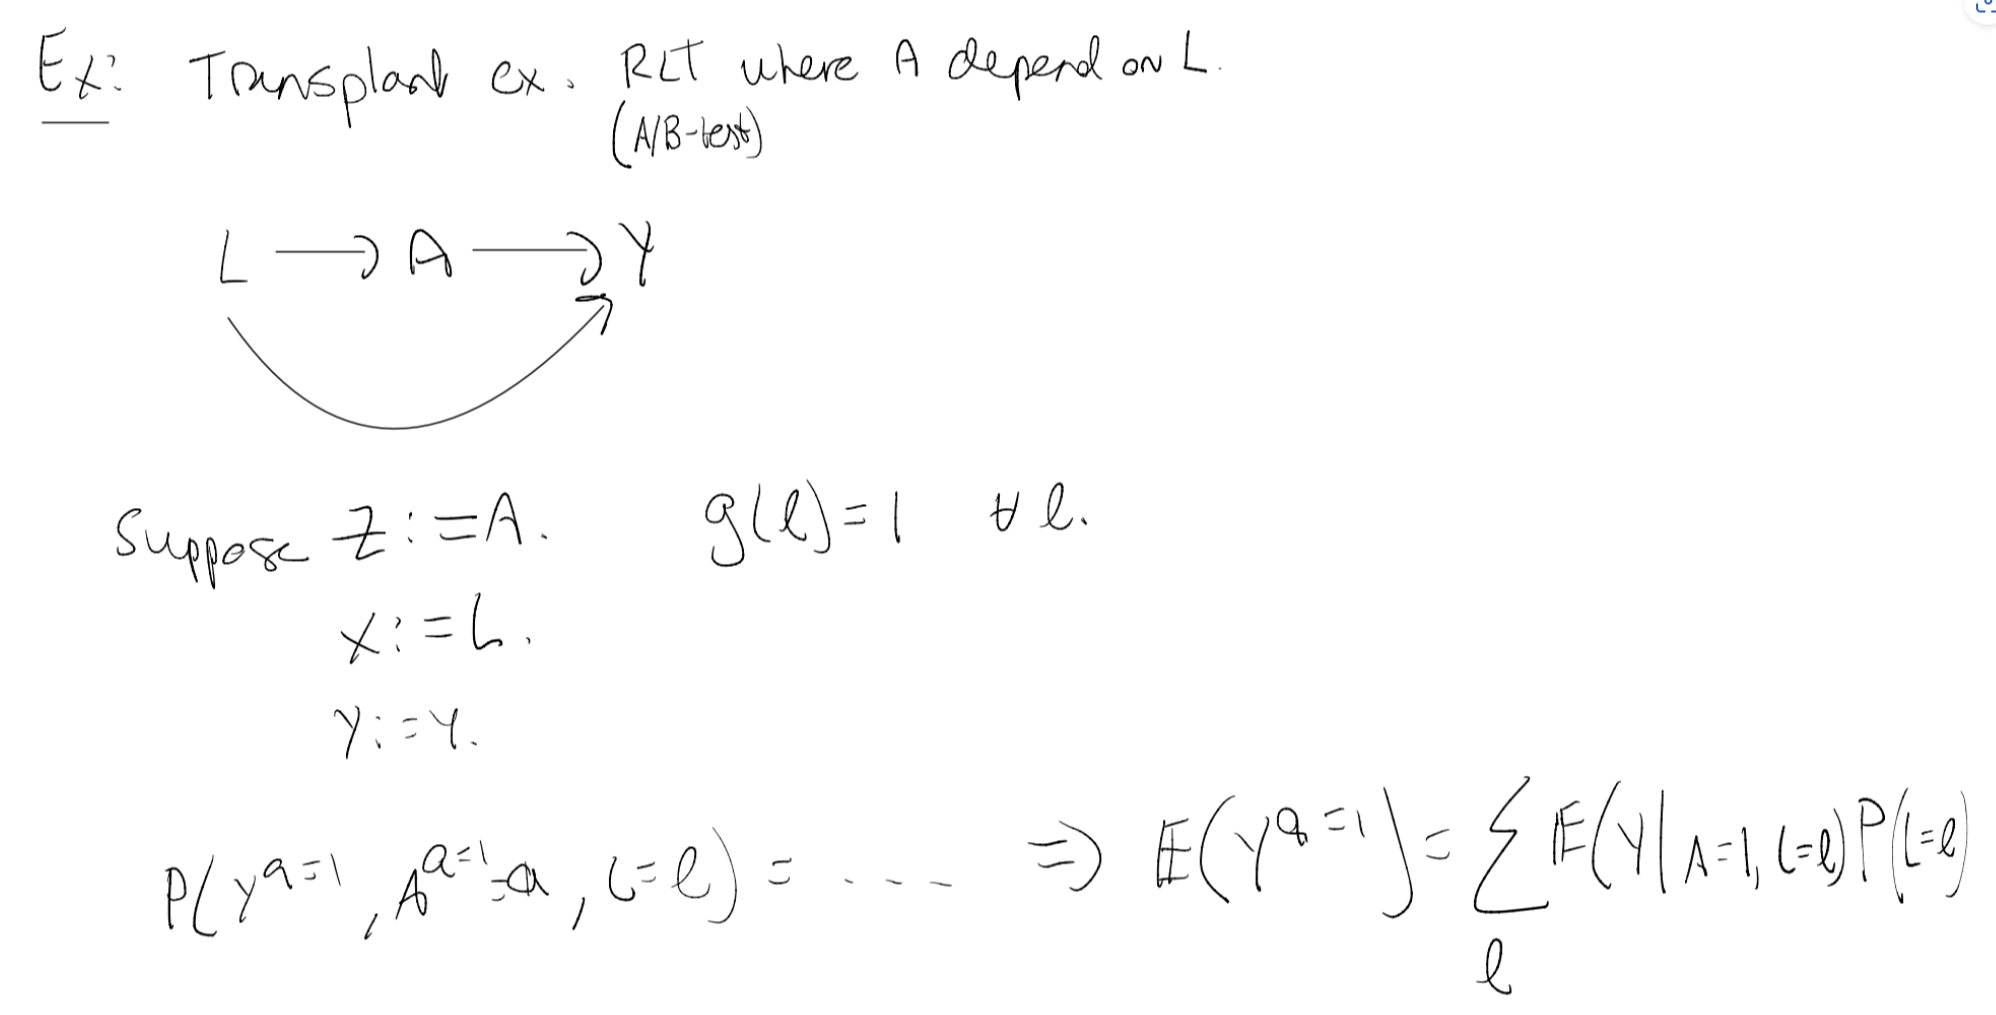 Ex: Transplant ex. RCT where A depend on L.
(A/B-test)
L → A → Y
Suppose Z := A. g(l) = 1 ∀ l.
X := L.
Y := Y.
P(Y^{a=1}, A^{a=1}=a, L=l) = .... ⇒ E(Y^{a=1}) = ∑_l E(Y | A=1, L=l) P(L=l)